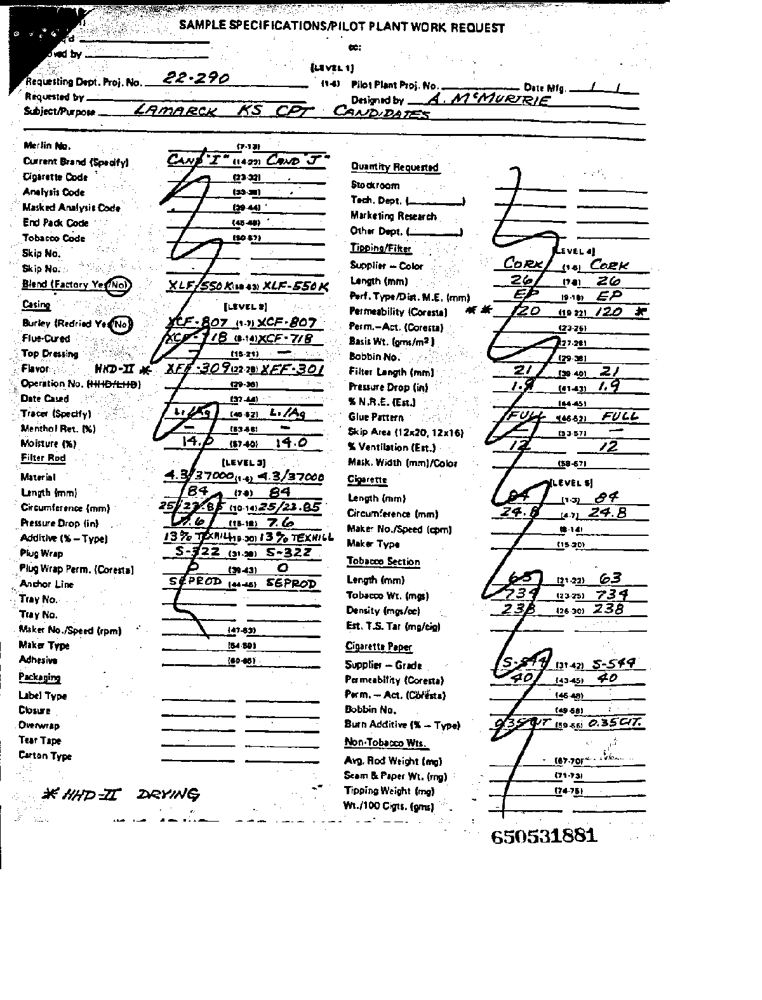 SAMPLE SPECIFICATIONS/PILOT PLANT WORK REQUEST
cc:
[LEVEL 1]
Requesting Dept. Proj. No. 22-290 (1-6) Pilot Plant Proj. No. Date Mfg. / /
Requested by Designed by A. McMURTRIE
Subject/Purpose LAMARCK KS CPT CANDIDATES
Merlin No. (7-13)
Current Brand (Specify) CAND "I" (14-22) CAND "J"
Cigarette Code (23-32)
Analysis Code (33-38)
Masked Analysis Code (39-44)
End Pack Code (45-49)
Tobacco Code (50-57)
Skip No.
Skip No.
Blend (Factory Yes/No) XLF/550K XLF-550K
Casing [LEVEL 2]
Burley (Redried Yes/No) XCF-807 (1-7) XCF-807
Flue-Cured XCF-718 (8-14) XCF-718
Top Dressing — (15-21) —
Flavor HHD-II * XFF-309 (22-28) XFF-301
Operation No. (HHD/LHD) (29-36)
Date Cased (37-44)
Tracer (Specify) Li/Ag Li/Ag
Menthol Ret. (%) — —
Moisture (%) 14.0 (57-60) 14.0
Filter Rod [LEVEL 3]
Material 4.3/37000 (1-6) 4.3/37000
Length (mm) 84 (7-9) 84
Circumference (mm) 25/23.85 (10-14) 25/23.85
Pressure Drop (in) 7.6 (15-18) 7.6
Additive (% – Type) 13% TEXHILL (19-30) 13% TEXHILL
Plug Wrap S-322 (31-38) S-322
Plug Wrap Perm. (Coresta) 0 (39-43) 0
Anchor Line SEPROD SEPROD
Tray No.
Tray No.
Maker No./Speed (rpm) (47-53)
Maker Type (54-59)
Adhesive
Packaging
Label Type
Closure
Overwrap
Tear Tape
Carton Type
* HHD-II DRYING
Quantity Requested
Stockroom
Tech. Dept. ( )
Marketing Research
Other Dept. ( )
Tipping/Filter [LEVEL 4]
Supplier – Color CORK (1-6) CORK
Length (mm) 26 (7-8) 26
Perf. Type/Dist. M.E. (mm) EP (9-18) EP
Permeability (Coresta) * * 120 (19-22) 120 *
Perm.–Act. (Coresta) (23-26)
Basis Wt. (gms/m²) (27-28)
Bobbin No. (29-38)
Filter Length (mm) 21 (39-40) 21
Pressure Drop (in) 1.9 (41-43) 1.9
% N.R.E. (Est.) (44-45)
Glue Pattern FULL (46-52) FULL
Skip Area (12x20, 12x16) — (53-57) —
% Ventilation (Est.) 12 12
Mask. Width (mm)/Color (58-67)
Cigarette [LEVEL 5]
Length (mm) 84 (1-3) 84
Circumference (mm) 24.8 (4-7) 24.8
Maker No./Speed (cpm) (8-14)
Maker Type (15-20)
Tobacco Section
Length (mm) 63 (21-22) 63
Tobacco Wt. (mgs) 734 (23-25) 734
Density (mgs/cc) 238 (26-30) 238
Est. T.S. Tar (mg/cig)
Cigarette Paper
Supplier – Grade S-544 (31-42) S-544
Permeability (Coresta) 40 (43-45) 40
Perm. – Act. (Coresta) (46-48)
Bobbin No. (49-58)
Burn Additive (% – Type) 0.35 CIT (59-66) 0.35 CIT.
Non-Tobacco Wts.
Avg. Rod Weight (mg) (67-70)
Seam & Paper Wt. (mg) (71-73)
Tipping Weight (mg) (74-76)
Wt./100 Cigts. (gms)
650531881